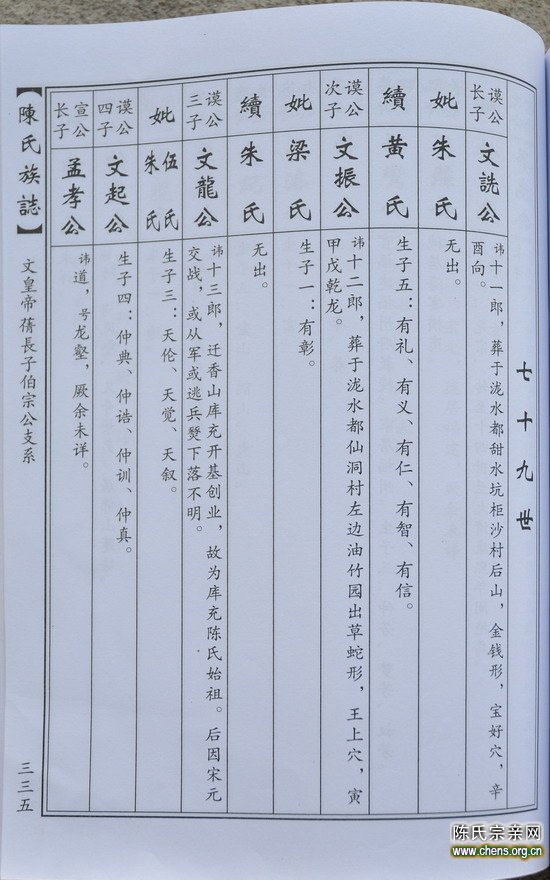 七十九世
谟公
长子
文詵公
讳十一郎，葬于泷水都甜水坑柜沙村后山，金钱形，宝好穴，辛
酉向。
妣
朱氏
无出。
續
黄氏
生子五：有礼、有义、有仁、有智、有信。
谟公
次子
文振公
讳十二郎，葬于泷水都仙洞村左边油竹园出草蛇形，王上穴，寅
甲戊乾龙。
妣
梁氏
生子一：有彰。
續
朱氏
无出。
谟公
三子
文龍公
讳十三郎，迁香山库充开基创业，故为库充陈氏始祖。后因宋元
交战，或从军或逃兵燹下落不明。
妣
伍氏
朱氏
生子三：天伦、天觉、天叙。
谟公
四子
文起公
生子四：仲典、仲诰、仲训、仲真。
宣公
长子
孟孝公
讳道，号龙壑，厥余未详。
【陳氏族誌】
文皇帝蒨長子伯宗公支系
三三五
陈氏宗亲网
www.chens.org.cn